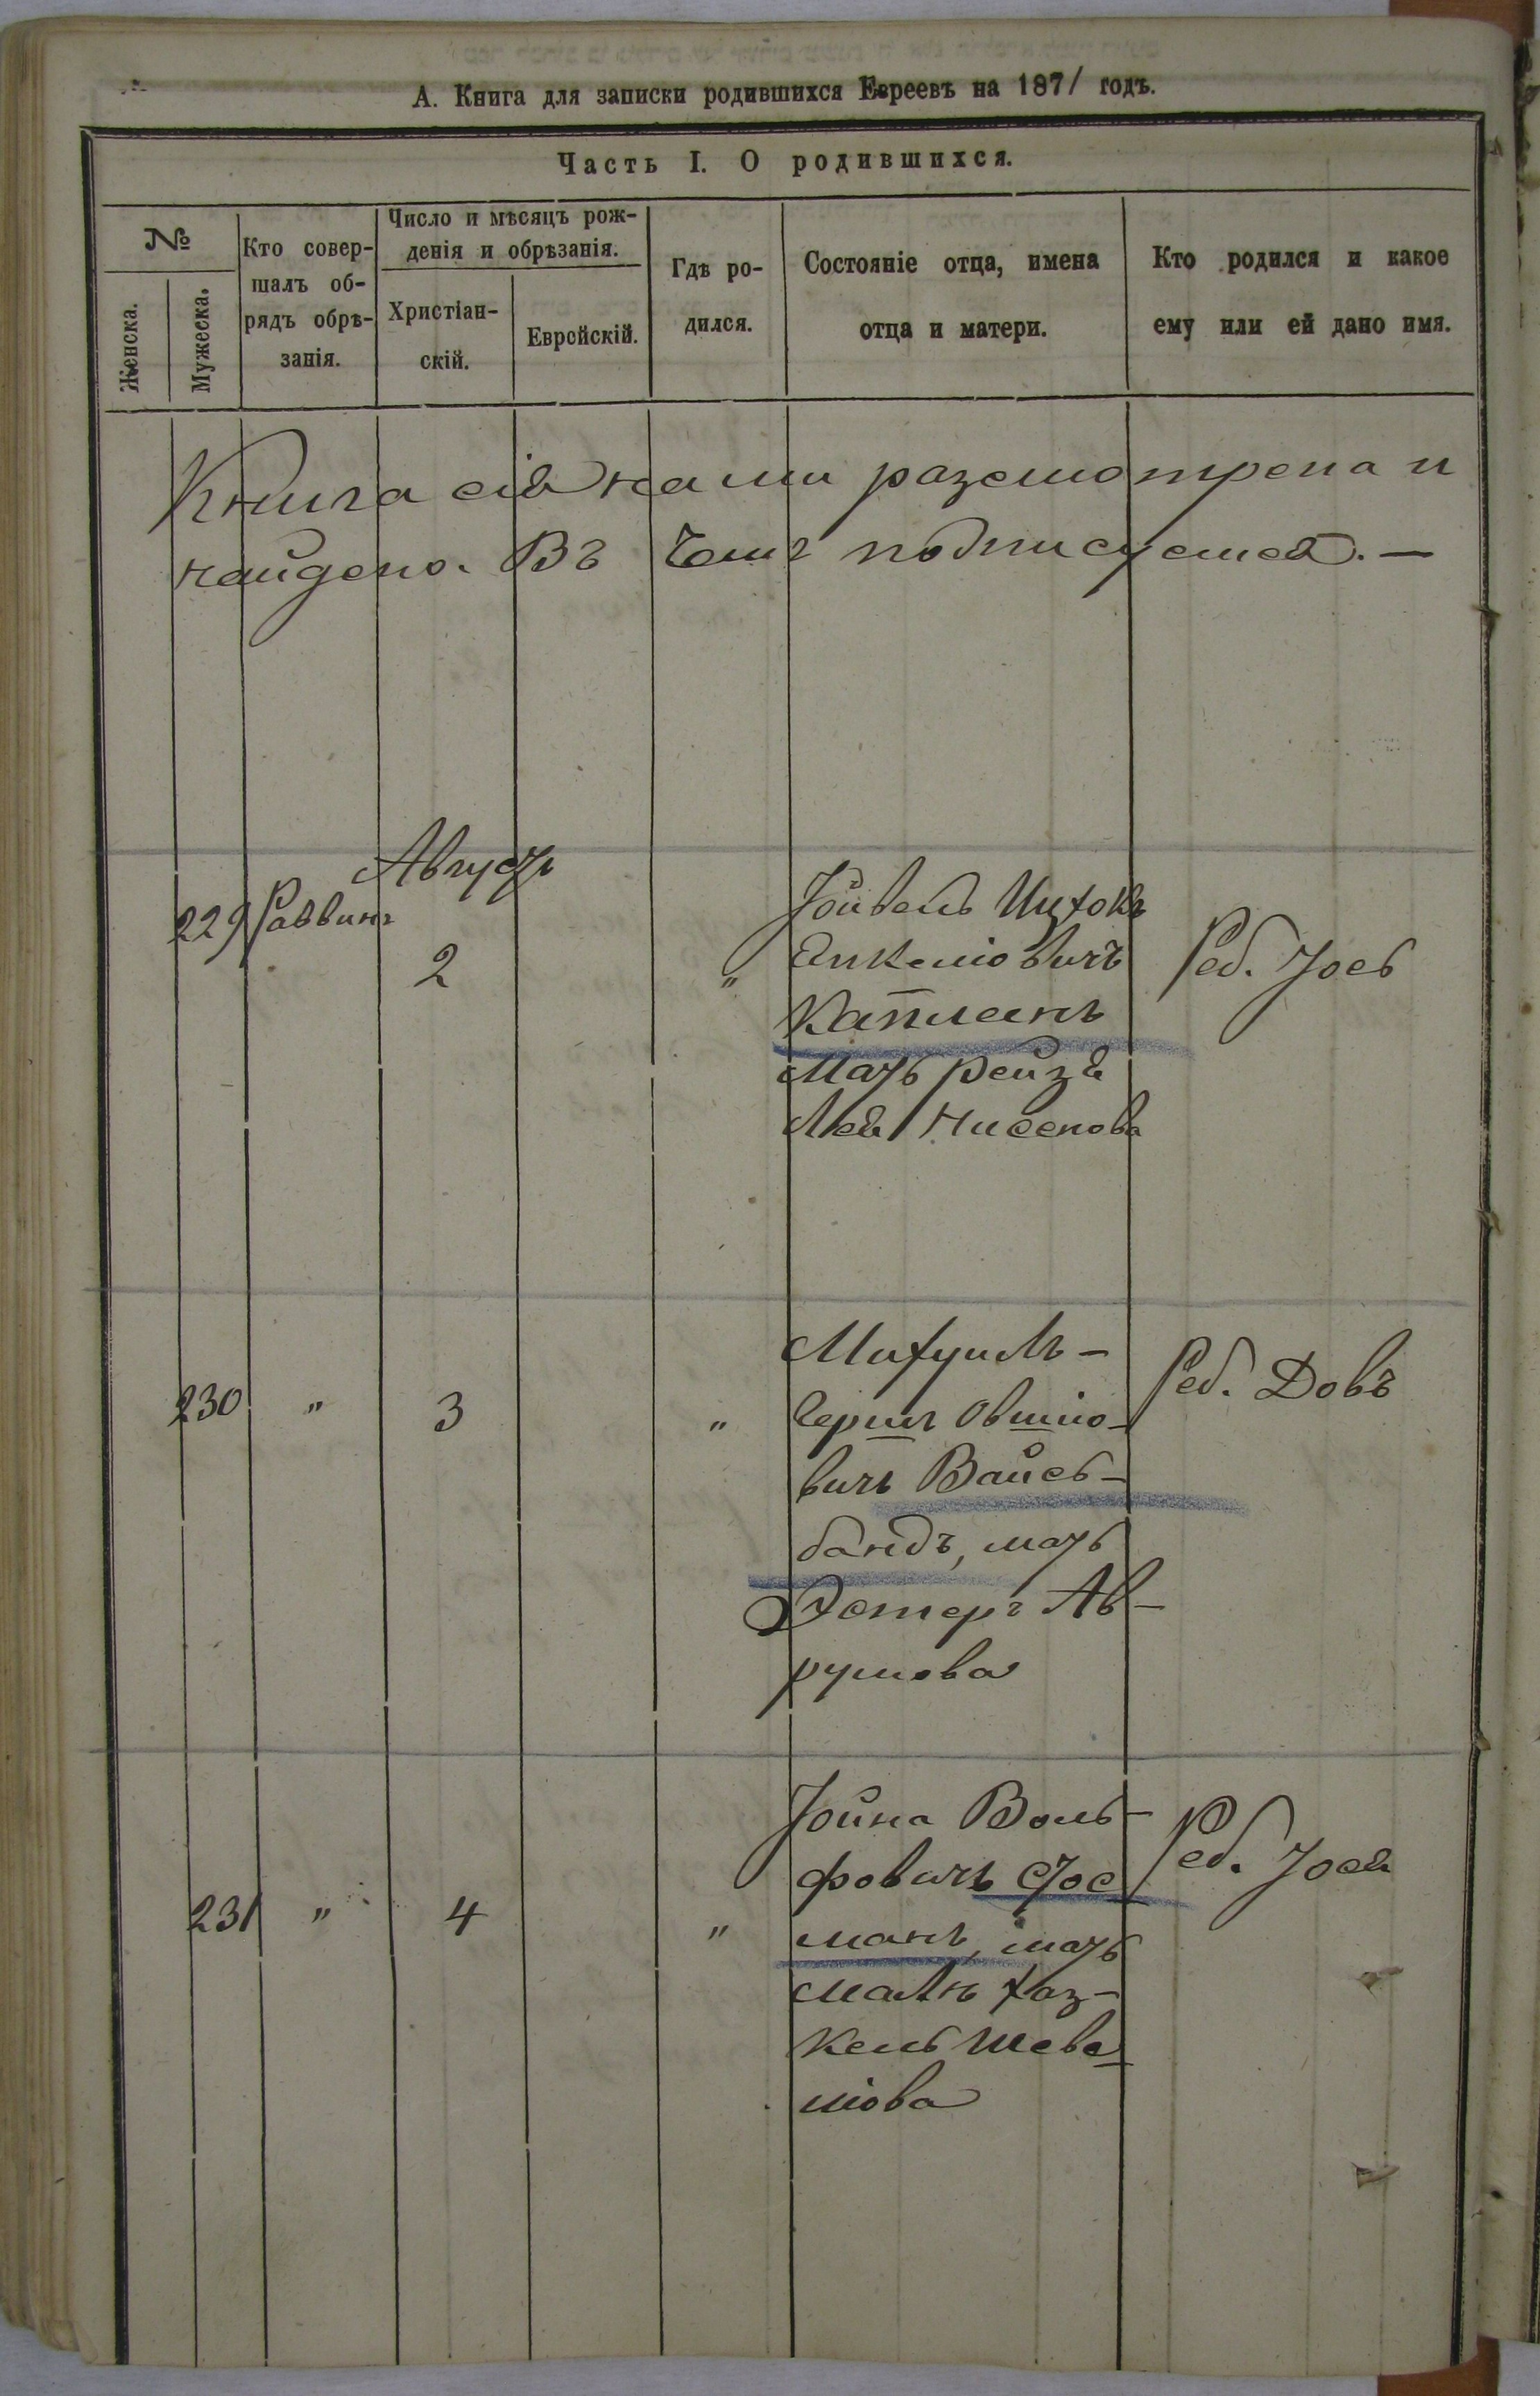 А. Книга для записки родившихся Евреевъ на 1871 годъ.
Часть I. О родившихся.
№
Женска.
Мужеска.
Кто совер-
шалъ об-
рядъ обрѣ-
занія.
Число и мѣсяцъ рож-
денія и обрѣзанія.
Христіан-
скій.
Еврейскій.
Гдѣ ро-
дился.
Состояніе отца, имена
отца и матери.
Кто родился и какое
ему или ей дано имя.
Книга сія нами разсмотрена и
найдено. Въ чемъ подписуемся. —
Августъ
229 Раввинъ 2 "
Іойвель Ицхокъ
Янкеліовичъ
Капланъ
Мать Рейзя
Лея Нисенова
Реб. Іось
230 " 3 "
Михуиль-
Гершъ Овшіо-
вичъ Вайсь-
бандъ, мать
Эстеръ Ав-
румова
Реб. Довъ
231 " 4 "
Іойна Воль-
фовичъ Стос
манъ, мать
Хаз-
кель Шева
ліова
Реб. Іося